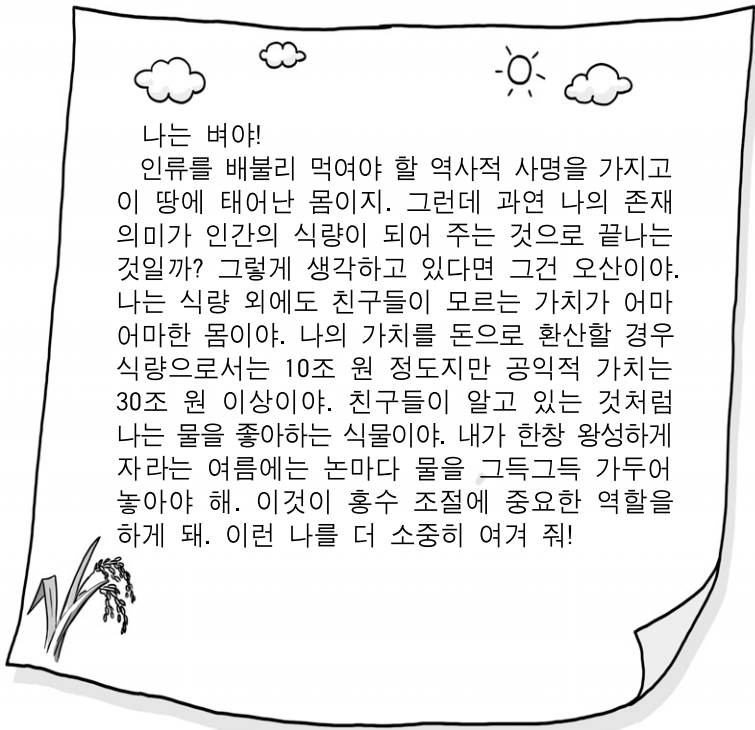 나는 벼야!
인류를 배불리 먹여야 할 역사적 사명을 가지고
이 땅에 태어난 몸이지. 그런데 과연 나의 존재
의미가 인간의 식량이 되어 주는 것으로 끝나는
것일까? 그렇게 생각하고 있다면 그건 오산이야.
나는 식량 외에도 친구들이 모르는 가치가 어마
어마한 몸이야. 나의 가치를 돈으로 환산할 경우
식량으로서는 10조 원 정도지만 공익적 가치는
30조 원 이상이야. 친구들이 알고 있는 것처럼
나는 물을 좋아하는 식물이야. 내가 한창 왕성하게
자라는 여름에는 논마다 물을 그득그득 가두어
놓아야 해. 이것이 홍수 조절에 중요한 역할을
하게 돼. 이런 나를 더 소중히 여겨 줘!